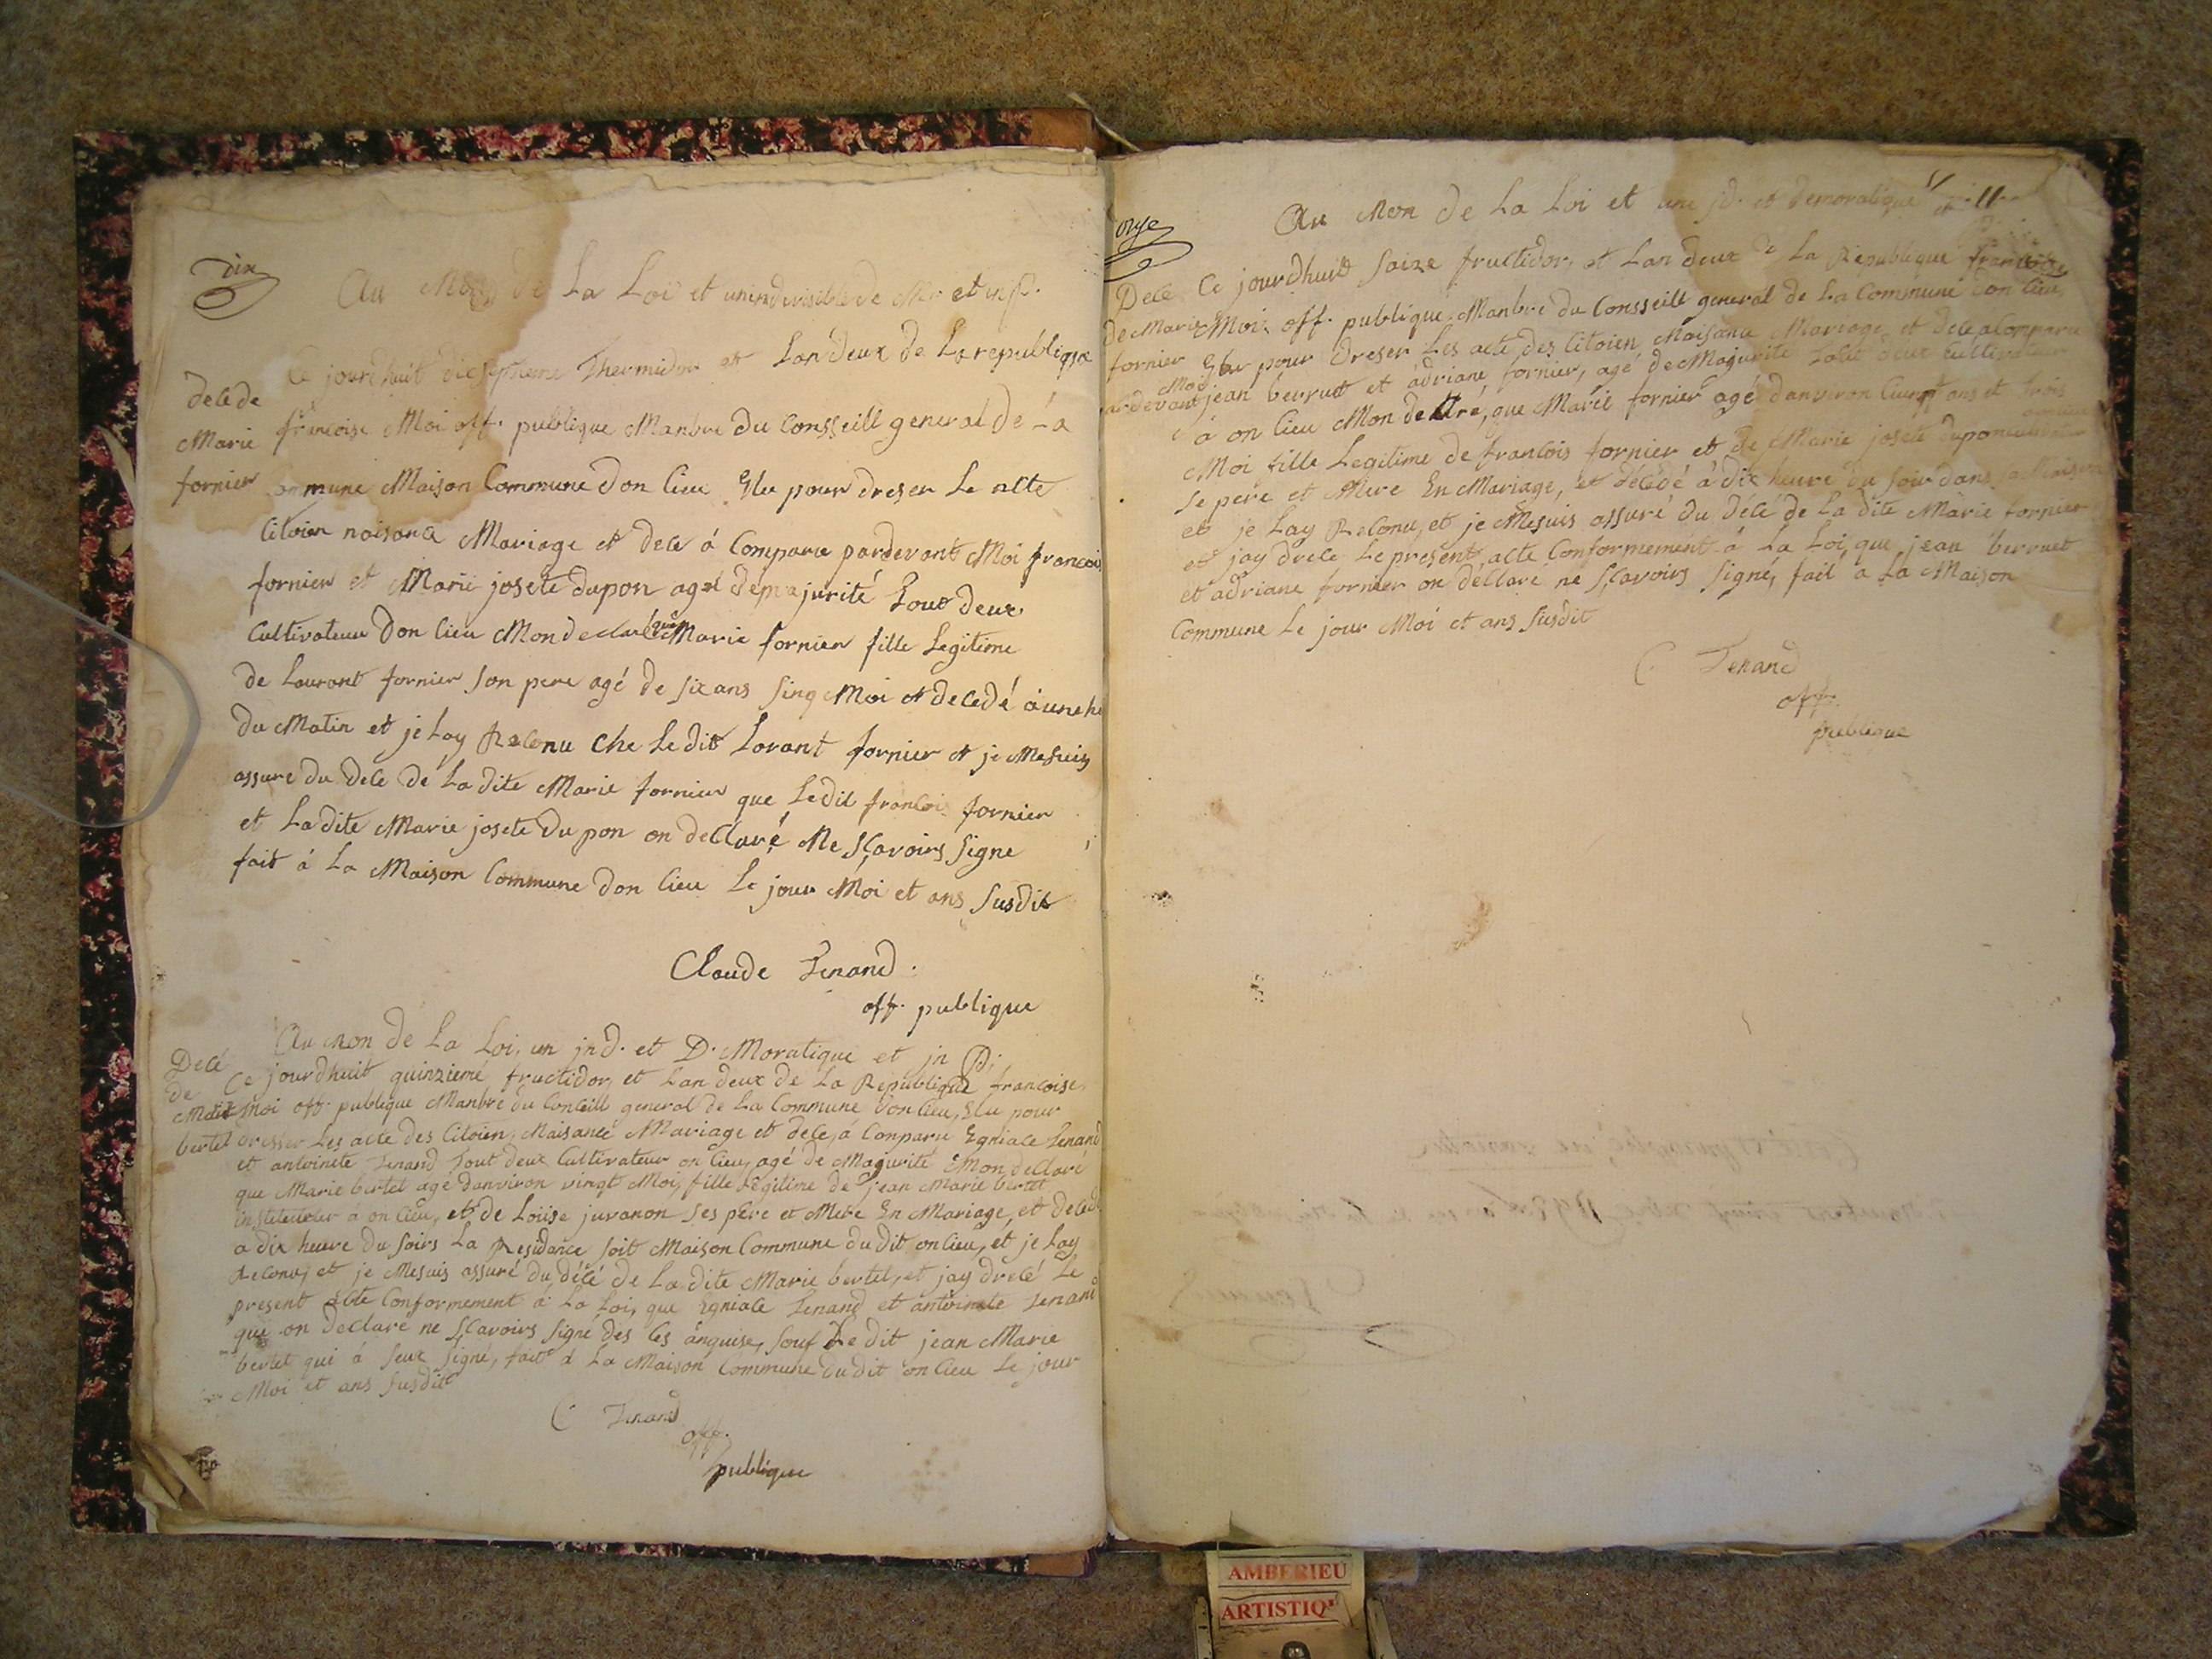 dix
Au Non de La Loi et unindivisible de Mr et inp.
Ce jourdhuit dicsetieme Thermidor et Lan deux de Larepublique
decede
Marie
fornier
francoise Moi off. publique Manbre du Consseill general de La
ommune Maison Commune don lieu Elu pour dreser Le acte
Citoien naisance Mariage et dece á Comparu pardevant Moi francoi
fornier et Marie josete dupon agé demajurité Tout deux
Cultivateur don lieu Mon declaré que Marie fornier fille Legitime
de Laurant fornier son pere agé de six ans sinq Moi et decedé á une he
du Matin et je Lay Reconu Che Le dit Lorant fornier et je Mesuis
assuré du dece de La dite Marie fornier que Le dit francois fornier
et La dite Marie josete Du pon on declaré Ne sçavoirs signe
fait á La Maison Commune don lieu Le jour Moi et ans susdit
Claude Tenand.
off. publique
Au Non de La Loi, un jnd. et D. Moratique et jn P.
Decé
de
Marie
bertet
Ce jourdhuit quinzieme fructidor, et Lan deux de La Republique francoise,
Moi off. publique Manbre du Conceill general de La Commune don lieu, Elu pour
dresser Les acte des Citoien, Naisance Mariage et dece, á Conparu Egniace Tenand
et antoinete Tenand Tout deux Cultivateur on lieu, agé de Magurité Mon declaré
que Marie bertet agé danviron vingt Moi, fille Legitime de jean Marie bertet
instituteur á on lieu, et de Loüise juvanon ses pere et Mere En Mariage, et decedé
a dix heure du soirs La Residance soit Maison Commune du dit on lieu, et je Lay
Reconu, et je Mesuis assuré du décé de La dite Marie bertet, et jay drecé Le
present acte Conformement á La Loi, que Egniace Tenand et antoinete Tenand
qui on declaré ne sçavoirs signé des Ces anquise, souf Le dit jean Marie
bertet qui á seux signé, fait á La Maison Commune du dit on lieu Le jour
Moi et ans susdit
C. Tenand
off.
publique
onze
Au Non de La Loi et une jd. et demoratique
Dece
de Marie
fornier
Ce jourdhuit saize fructidor, et Lan deux de La Republique francoise
Moi off. publique Manbre du Consseill general de La Commune don lieu
Elu pour dreser Les acte des Citoien Naisance Mariage et dece a Comparu
ardevant Moi jean berruet et adriane fornier, agé de Magurité Tout deux Cultivateur
á on lieu Mon declaré, que Marie fornier agé danviron ans et trois
Moi fille Legitime de francois fornier et de Marie josete dupon
se pere et Mere En Mariage, et décédé á dix heure du soir dans sa Maison
et je Lay Reconu, et je Mesuis assuré du décé de La dite Marie fornier
et jay drece Le present acte Conformement á La Loi, que jean berruet
et adriane fornier on déclaré ne sçavoirs signé, fait a La Maison
Commune Le jour Moi et ans susdit
C. Tenand
off.
publique
AMBERIEU
ARTISTIQ'